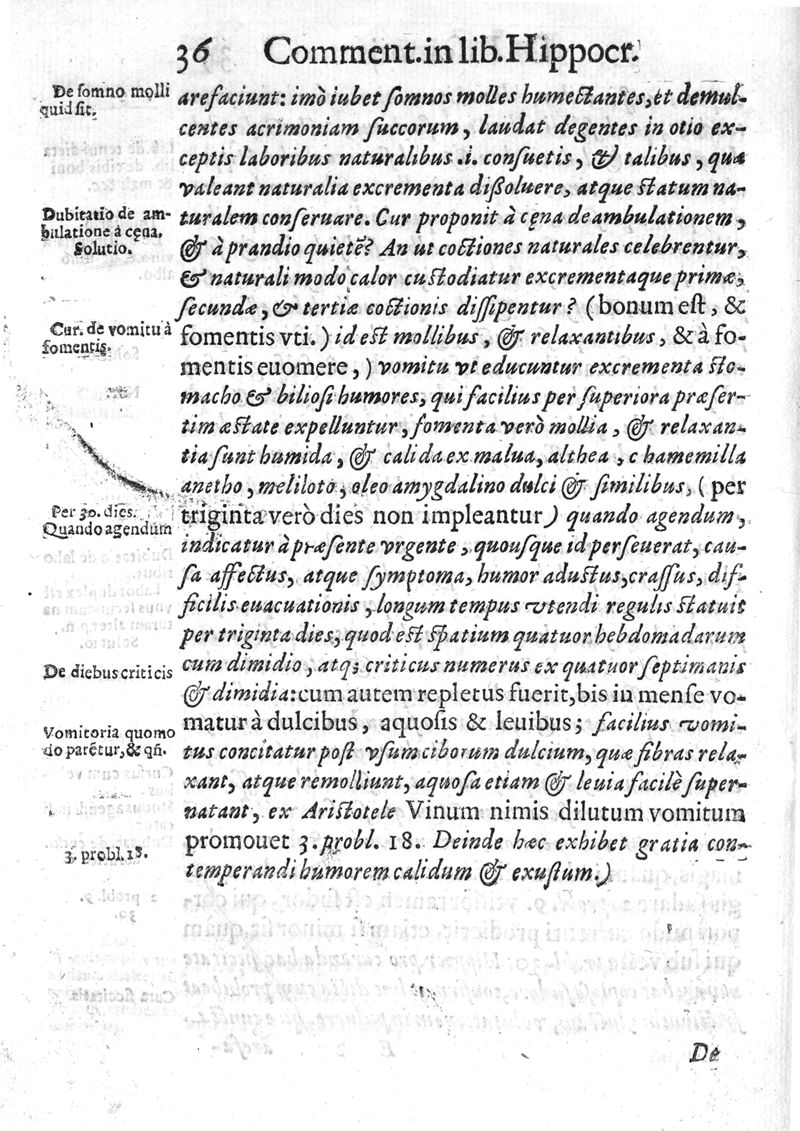 36 Comment. in lib. Hippocr.
De ſomno molli
quid ſit.
arefaciunt: imò iubet ſomnos molles humectantes, et demul-
centes acrimoniam ſuccorum, laudat degentes in otio ex-
ceptis laboribus naturalibus .i. conſuetis, & talibus, quæ
valeant naturalia excrementa diſſoluere, atque ſtatum na-
Dubitatio de am-
bulatione à cęna.
Solutio.
turalem conſeruare. Cur proponit à cęna deambulationem,
& à prandio quietē? An ut coctiones naturales celebrentur,
& naturali modo calor cuſtodiatur excrementaque primæ,
ſecundæ, & tertiæ coctionis diſſipentur? (bonum eſt, &
Cur. de vomitu à
fomentis.
fomentis vti.) id eſt mollibus, & relaxantibus, & à fo-
mentis euomere,) vomitu vt educuntur excrementa ſto-
macho & bilioſi humores, qui facilius per ſuperiora præſer-
tim æſtate expelluntur, fomenta verò mollia, & relaxan-
tia ſunt humida, & calida ex malua, althea, chamemilla
anetho, meliloto, oleo amygdalino dulci & ſimilibus, (per
Per 30. dies.
Quando agendum
triginta verò dies non impleantur) quando agendum,
indicatur à præſente vrgente, quouſque id perſeuerat, cau-
ſa affectus, atque ſymptoma, humor aduſtus, craſſus, dif-
ficilis euacuationis, longum tempus vtendi regulis ſtatuit
per triginta dies, quod eſt ſpatium quatuor hebdomadarum
De diebus criticis
cum dimidio, atq; criticus numerus ex quatuor ſeptimanis
& dimidia: cum autem repletus fuerit, bis in menſe vo-
Vomitoria quomo
do parētur, & qñ.
matur à dulcibus, aquoſis & leuibus; facilius vomi-
tus concitatur poſt vſum ciborum dulcium, quæ fibras rela-
xant, atque remolliunt, aquoſa etiam & leuia facilè ſuper-
natant, ex Ariſtotele Vinum nimis dilutum vomitum
3. probl. 18.
promouet 3. probl. 18. Deinde hæc exhibet gratia con-
temperandi humorem calidum & exuſtum.)
De